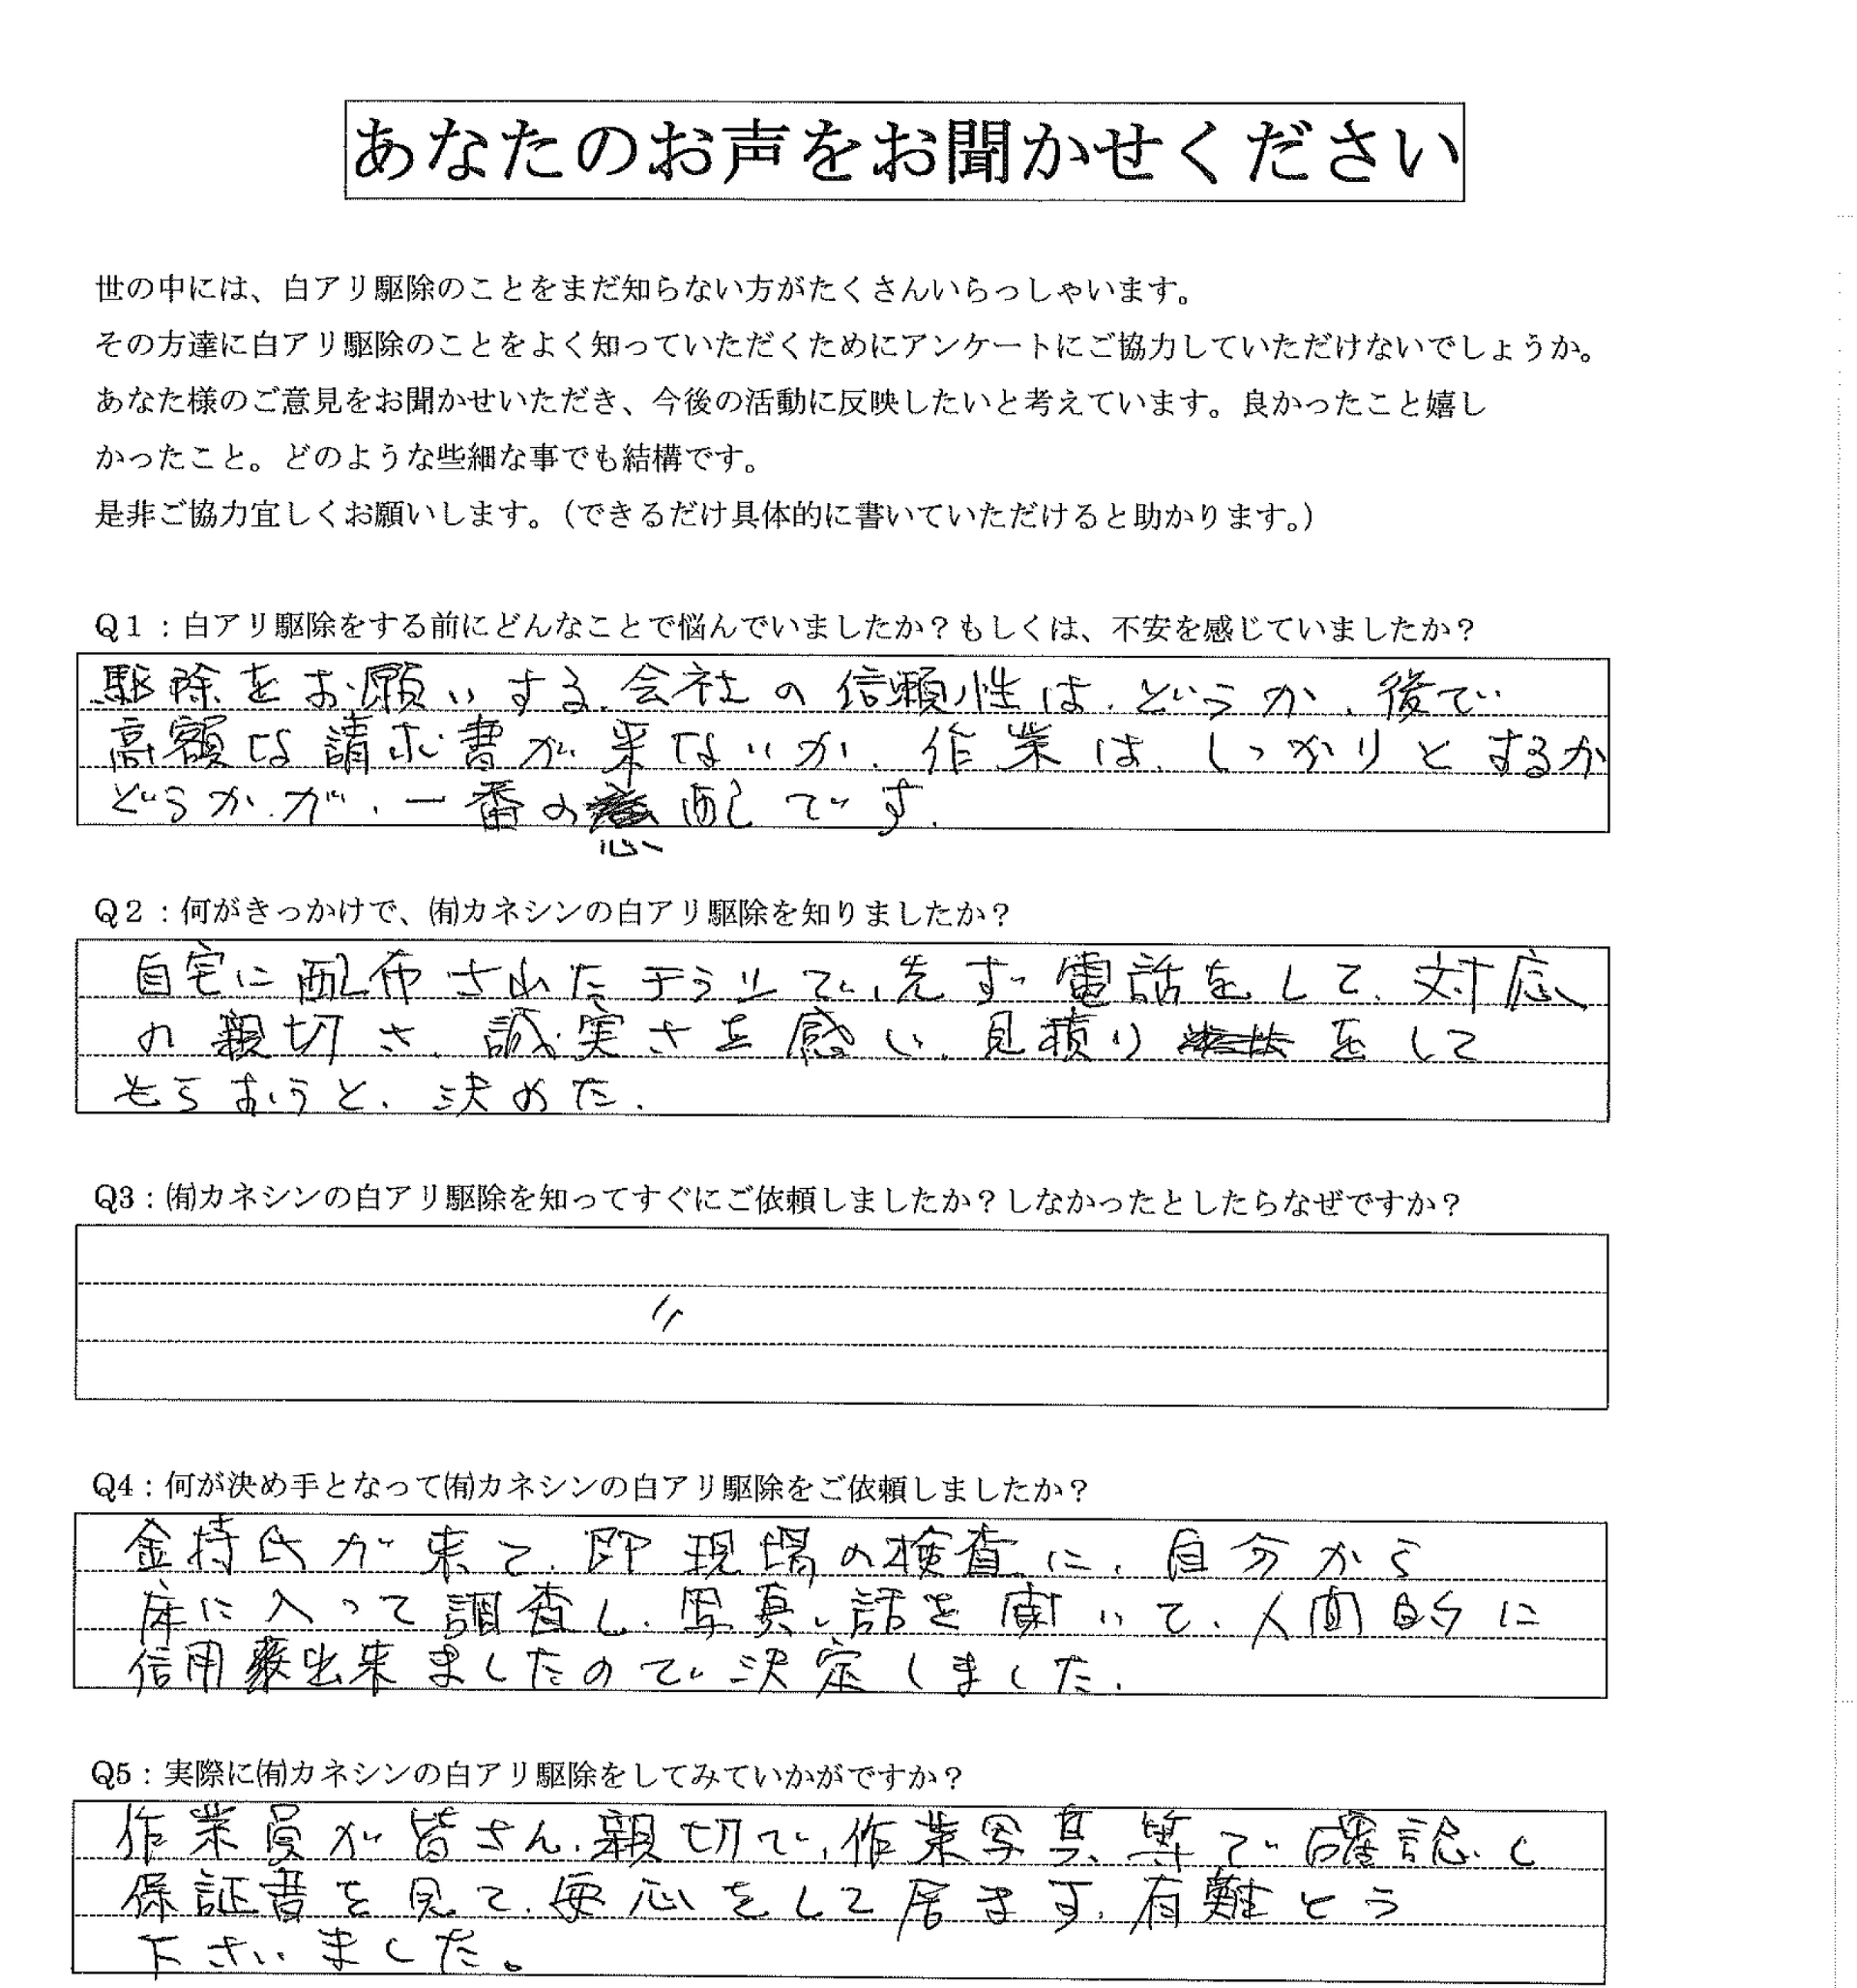 あなたのお声をお聞かせください
世の中には、白アリ駆除のことをまだ知らない方がたくさんいらっしゃいます。
その方達に白アリ駆除のことをよく知っていただくためにアンケートにご協力していただけないでしょうか。
あなた様のご意見をお聞かせいただき、今後の活動に反映したいと考えています。良かったこと嬉し
かったこと。どのような些細な事でも結構です。
是非ご協力宜しくお願いします。（できるだけ具体的に書いていただけると助かります。）
Q1：白アリ駆除をする前にどんなことで悩んでいましたか？もしくは、不安を感じていましたか？
駆除をお願いする、会社の信頼性は、どうか、後で
高額な請求書が来ないか、作業は、しっかりとするか
どうかが、一番の心配です。
Q2：何がきっかけで、㈲カネシンの白アリ駆除を知りましたか？
自宅に配布されたチラシで、先ず電話をして、対応
の親切さ、誠実さを感じ、見積りをして
もらおうと、決めた。
Q3：㈲カネシンの白アリ駆除を知ってすぐにご依頼しましたか？しなかったとしたらなぜですか？
〃
Q4：何が決め手となって㈲カネシンの白アリ駆除をご依頼しましたか？
金持氏が来て、即現場の検査に、自分から
床に入って調査し、写真、話を聞いて、人間的に
信用出来ましたので決定しました。
Q5：実際に㈲カネシンの白アリ駆除をしてみていかがですか？
作業員が皆さん、親切で、作業写真等で確認し
保証書を見て、安心をして居ます、有難とう
下さいました。